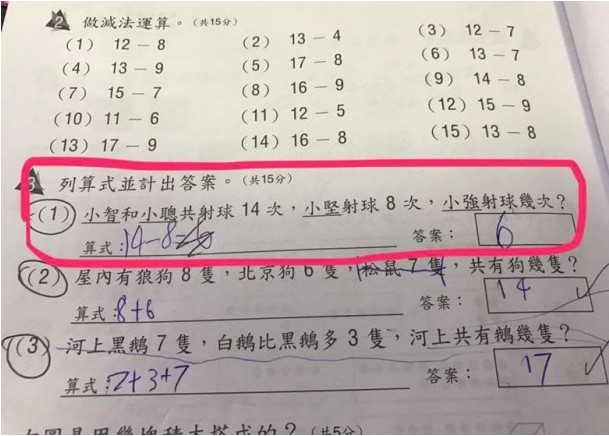 2 做減法運算。(共15分)
(1) 12 － 8 (2) 13 － 4 (3) 12 － 7
(4) 13 － 9 (5) 17 － 8 (6) 13 － 7
(7) 15 － 7 (8) 16 － 9 (9) 14 － 8
(10) 11 － 6 (11) 12 － 5 (12) 15 － 9
(13) 17 － 9 (14) 16 － 8 (15) 13 － 8
3 列算式並計出答案。(共15分)
(1) 小智和小聰共射球 14 次，小堅射球 8 次，小強射球幾次？
算式：14-8=6 答案： 6
(2) 屋內有狼狗 8 隻，北京狗 6 隻，松鼠 7 隻，共有狗幾隻？
算式：8+6 答案： 14
(3) 河上黑鵝 7 隻，白鵝比黑鵝多 3 隻，河上共有鵝幾隻？
算式：7+3+7 答案： 17